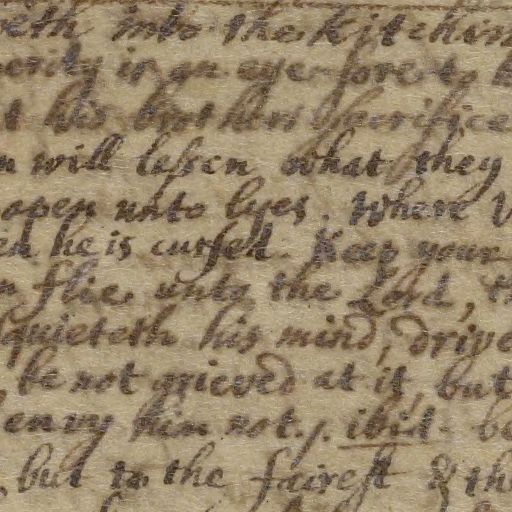 eth into the Kitchin
perity is an eye-sore to
t his brothers sacrifice
n will lessen what they
open unto lyes. Where
en he is cursed. Keep your
flie unto the Lord, th
quieteth his mind, drive
be not grieved at it, but
envy him not. ibid. b
, but to the fairest & th